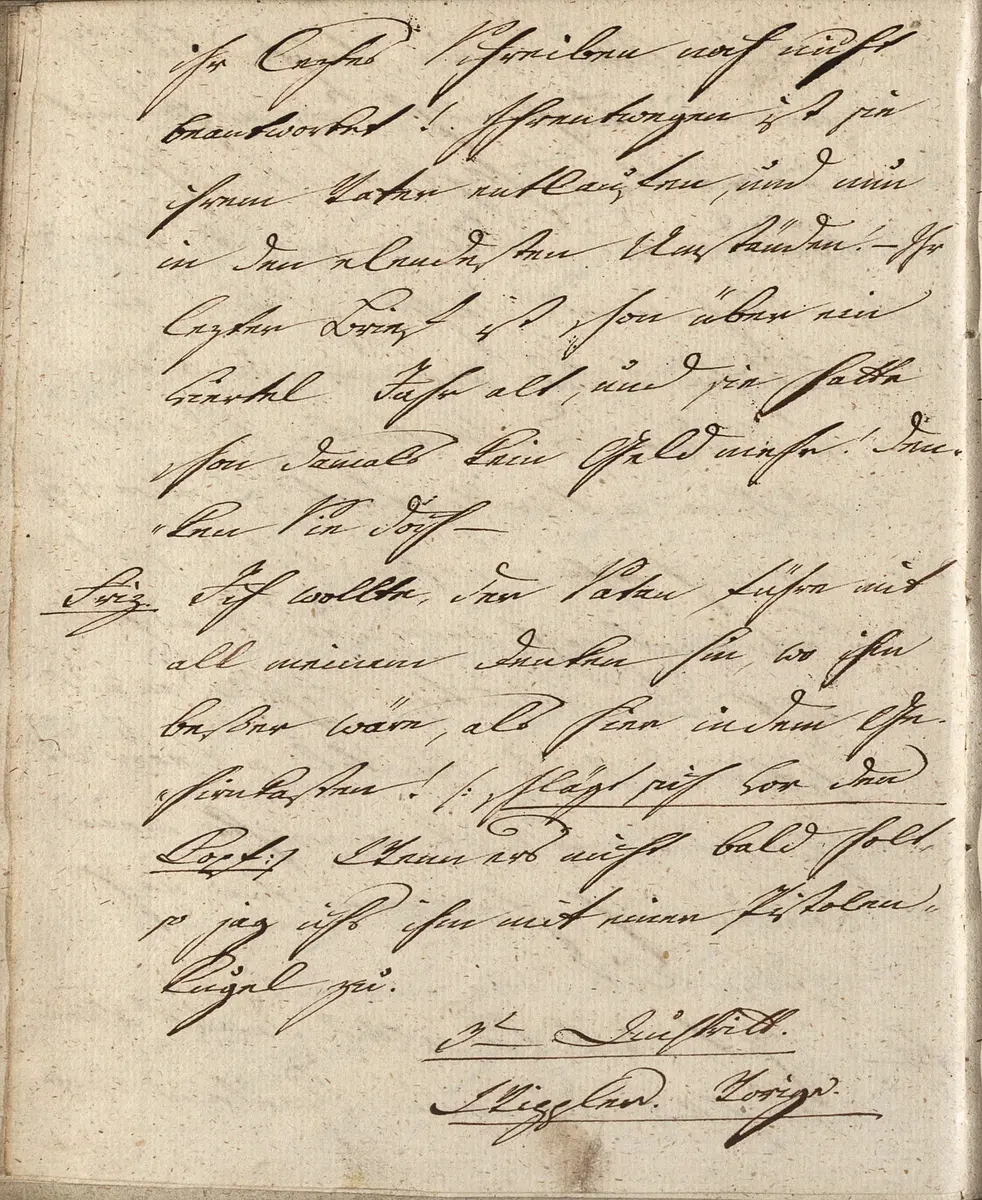 ihr leztes Schreiben noch nicht
beantwortet! Ihrentwegen ist sie
ihrem Vater entlaufen, und nun
in den elendesten Umständen! – Ihr
lezter Brief ist schon über ein
viertel Jahr alt, und sie hatte
schon damals kein Geld mehr! den-
"ken Sie doch –
Friz. Ich wollte, der Satan führe mit
all meinem Denken hin, wo ihm
beßer wäre, als hier in dem Ge-
hirnkasten! /: schlägt sich vor den
Kopf :/ Wenn ers nicht bald holt,
so jag ichs ihm mit einer Pistolen-
kugel zu.
3t Auftritt.
Wippler. Vorige.